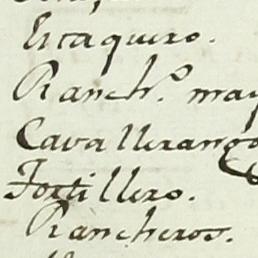 Estaquero.
Ranch.º may
Cavallerango
Fortillero.
Rancheros.